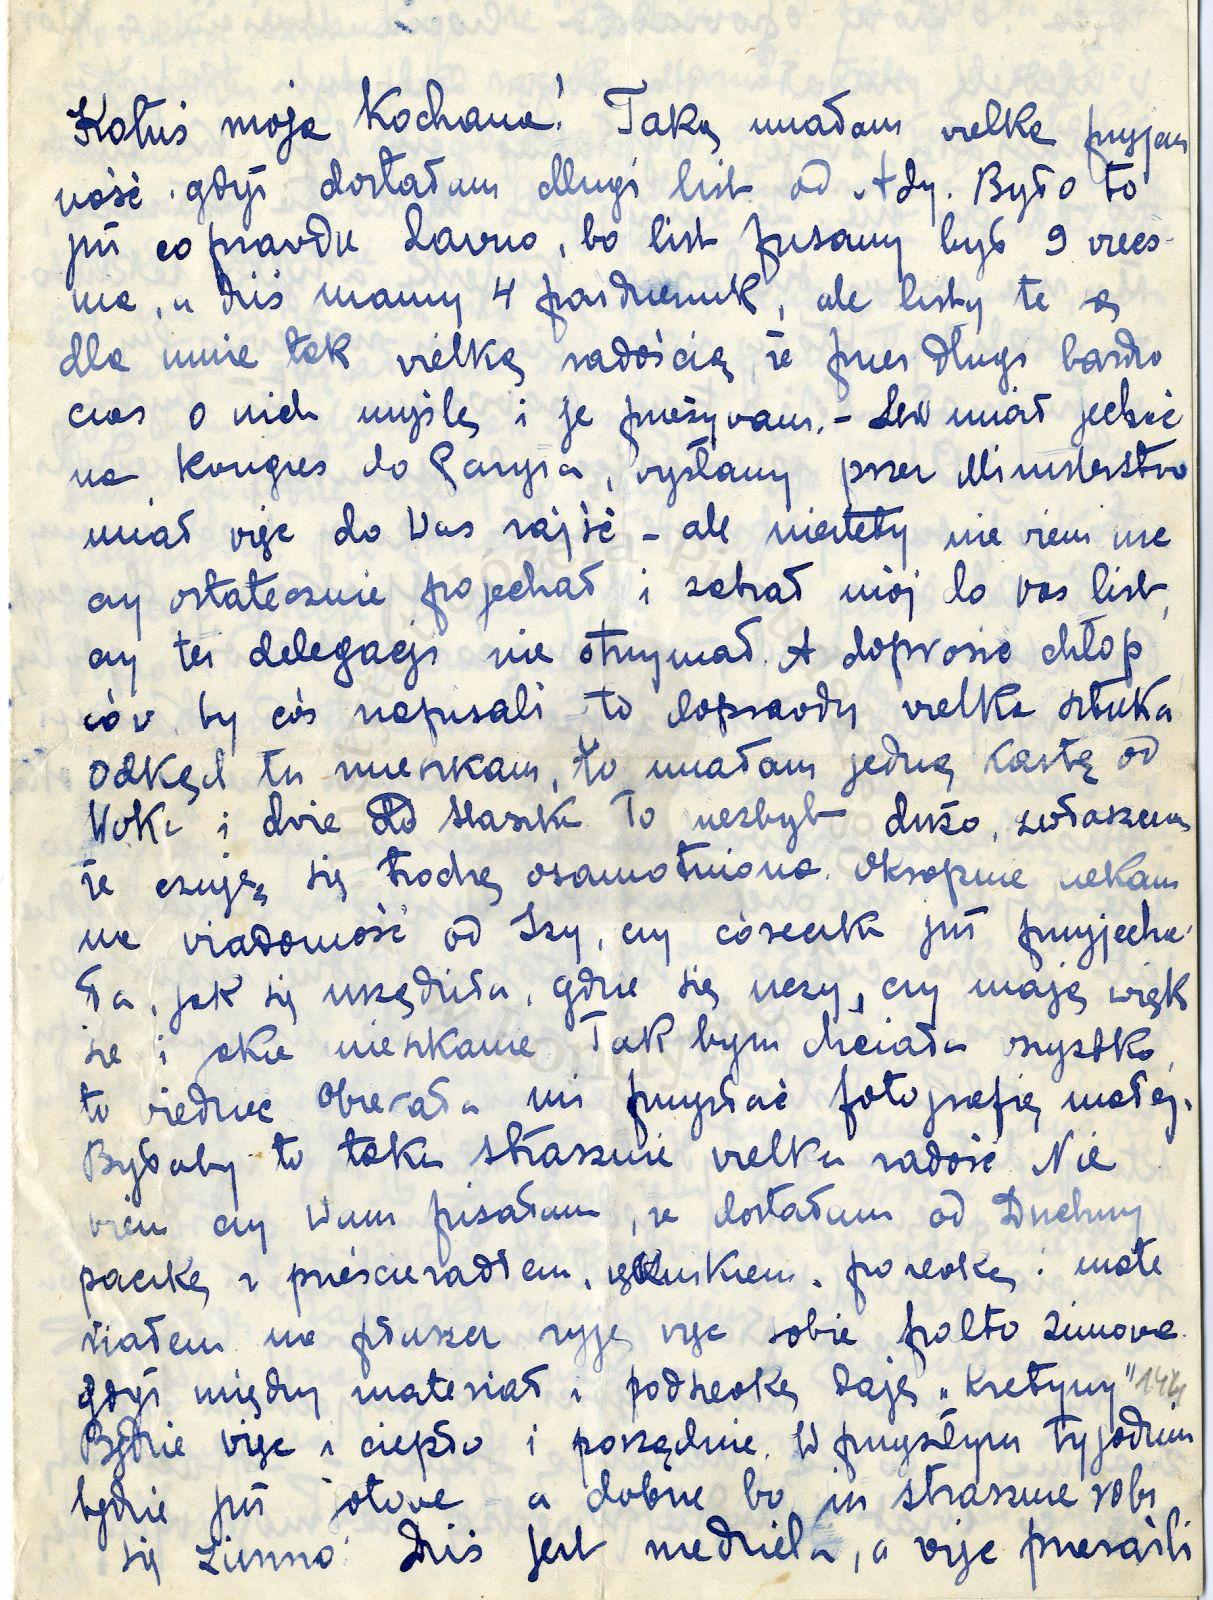 Kotuś moja Kochana! Taką miałam wielką przyjem
ność, gdyż dostałam długi list od Ady. Było to
już co prawda dawno, bo list pisany był 9 wrześ-
nia, a dziś mamy 4 październik, ale listy te są
dla mnie tak wielką radością, że przez długi bardzo
czas o nich myślę i je przeżywam. - Lew miał jechać
na Kongres do Paryża, wysłany przez Ministerstwo
miał więc do Was zajść - ale niestety nie wiem
czy ostatecznie pojechał i zabrał mój do Was list,
czy też delegacji nie otrzymał. A doprosić chłop
ców by coś napisali to doprawdy wielka sztuka
Odkąd tu mieszkam, to miałam jedną kartę od
Woka i dwie od Staszka To niezbyt dużo, zwłaszcza
że czuję się trochę osamotniona. Okropnie czekam
na wiadomość od Izy, czy córeczka już przyjecha-
ła, jak się urządziła, gdzie się uczy, czy mają więk
sze i jakie mieszkanie Tak bym chciała wszystko
to wiedzieć Obiecała mi przysłać fotografię małej.
Byłaby to taka strasznie wielka radość Nie
wiem czy Wam pisałam, że dostałam od Duchny
paczkę z prześcieradłem, podszewką i mate
riałem na płaszcz szyję więc sobie palto zimowe
gdyż między materiał i podszewkę daję „Kretyny" 144
Będzie więc i ciepło i porządnie. W przyszłym tygodniu
będzie już gotowe - a dobrze bo już strasznie robi
się zimno. Dziś jest niedziela, a więc przeszli